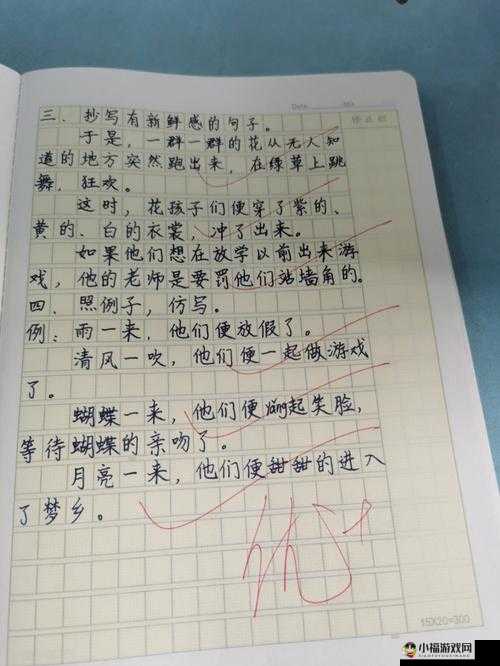 Date . No.
三、抄写有新鲜感的句子。
于是，一群一群的花从无人知
道的地方突然跑出来，在绿草上跳
舞，狂欢。
这时，花孩子们便穿了紫的、
黄的、白的衣裳，冲了出来。
如果他们想在放学以前出来游
戏，他的老师是要罚他们站墙角的。
四、照例子，仿写。
例：雨一来，他们便放假了。
清风一吹，他们便一起做游戏
了。
蝴蝶一来，他们便yáng起笑脸，
等待蝴蝶的亲吻了。
月亮一来，他们便甜甜的进入
了梦乡。
优+
15X20=300
小福游戏网